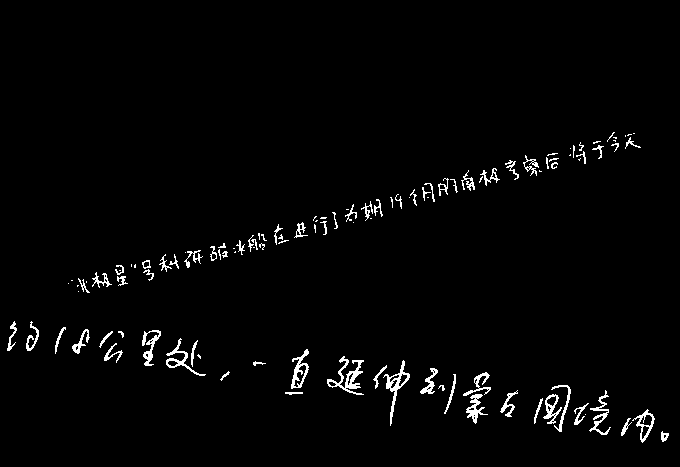 “北极星”号科研破冰船在进行了为期19个月的南极考察后将于今天
约18公里处，一直延伸到蒙古国境内。